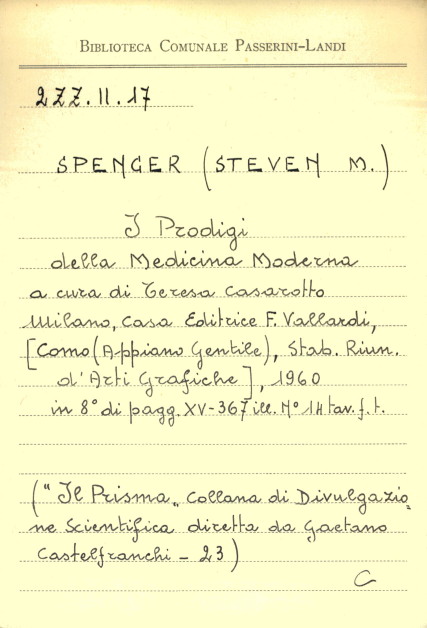 BIBLIOTECA COMUNALE PASSERINI-LANDI
2ZZ.II.17
SPENCER (STEVEN M.)
I Prodigi
della Medicina Moderna
a cura di Teresa Casarotto
Milano, Casa Editrice F. Vallardi,
[Como (Appiano Gentile), Stab. Riun.
d'Arti Grafiche], 1960
in 8° di pagg. XV-367 ill. N° 14 tav. f. t.
("Il Prisma„ Collana di Divulgazio
ne Scientifica diretta da Gaetano
Castelfranchi - 23)
C